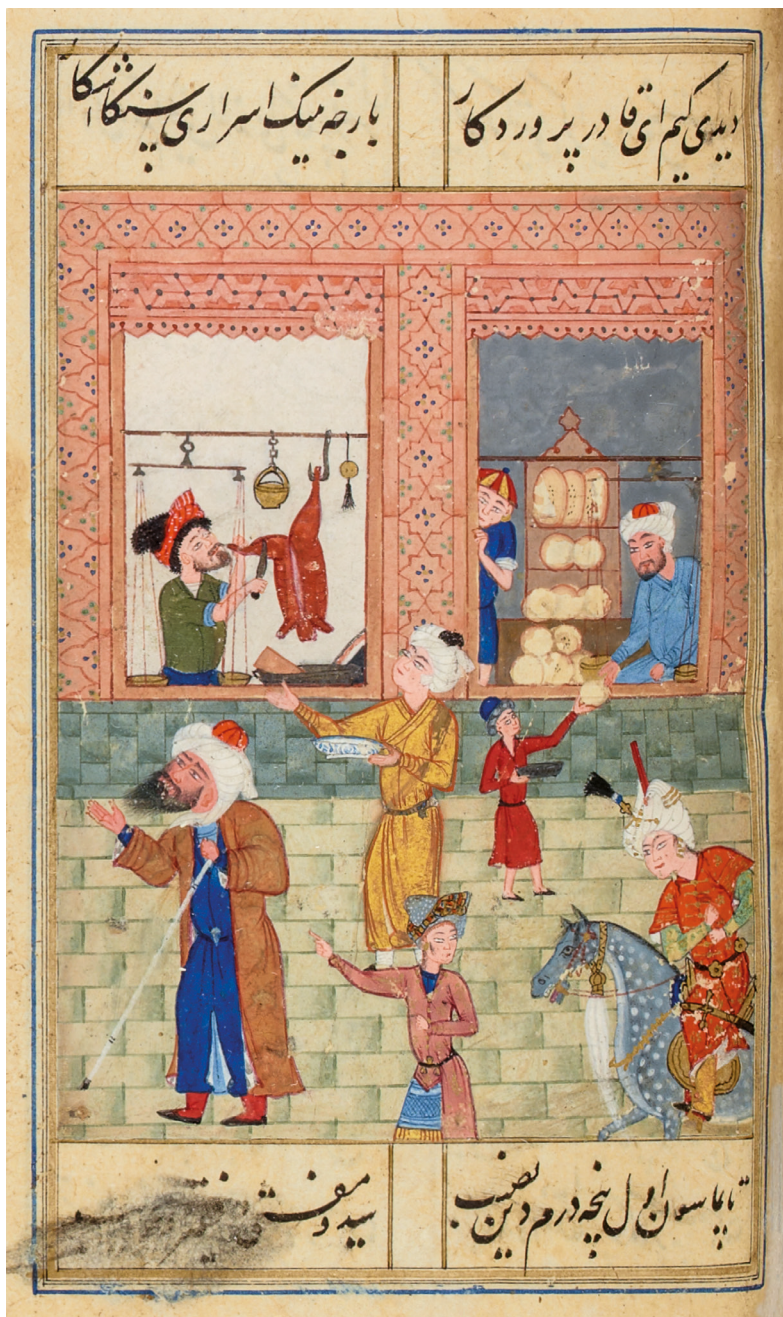 دیدی کیم ای قادر پروردکار
بارچه نینک اسراری سنکا اشکار
تاپماسون اول نیچه درم دین نصیب